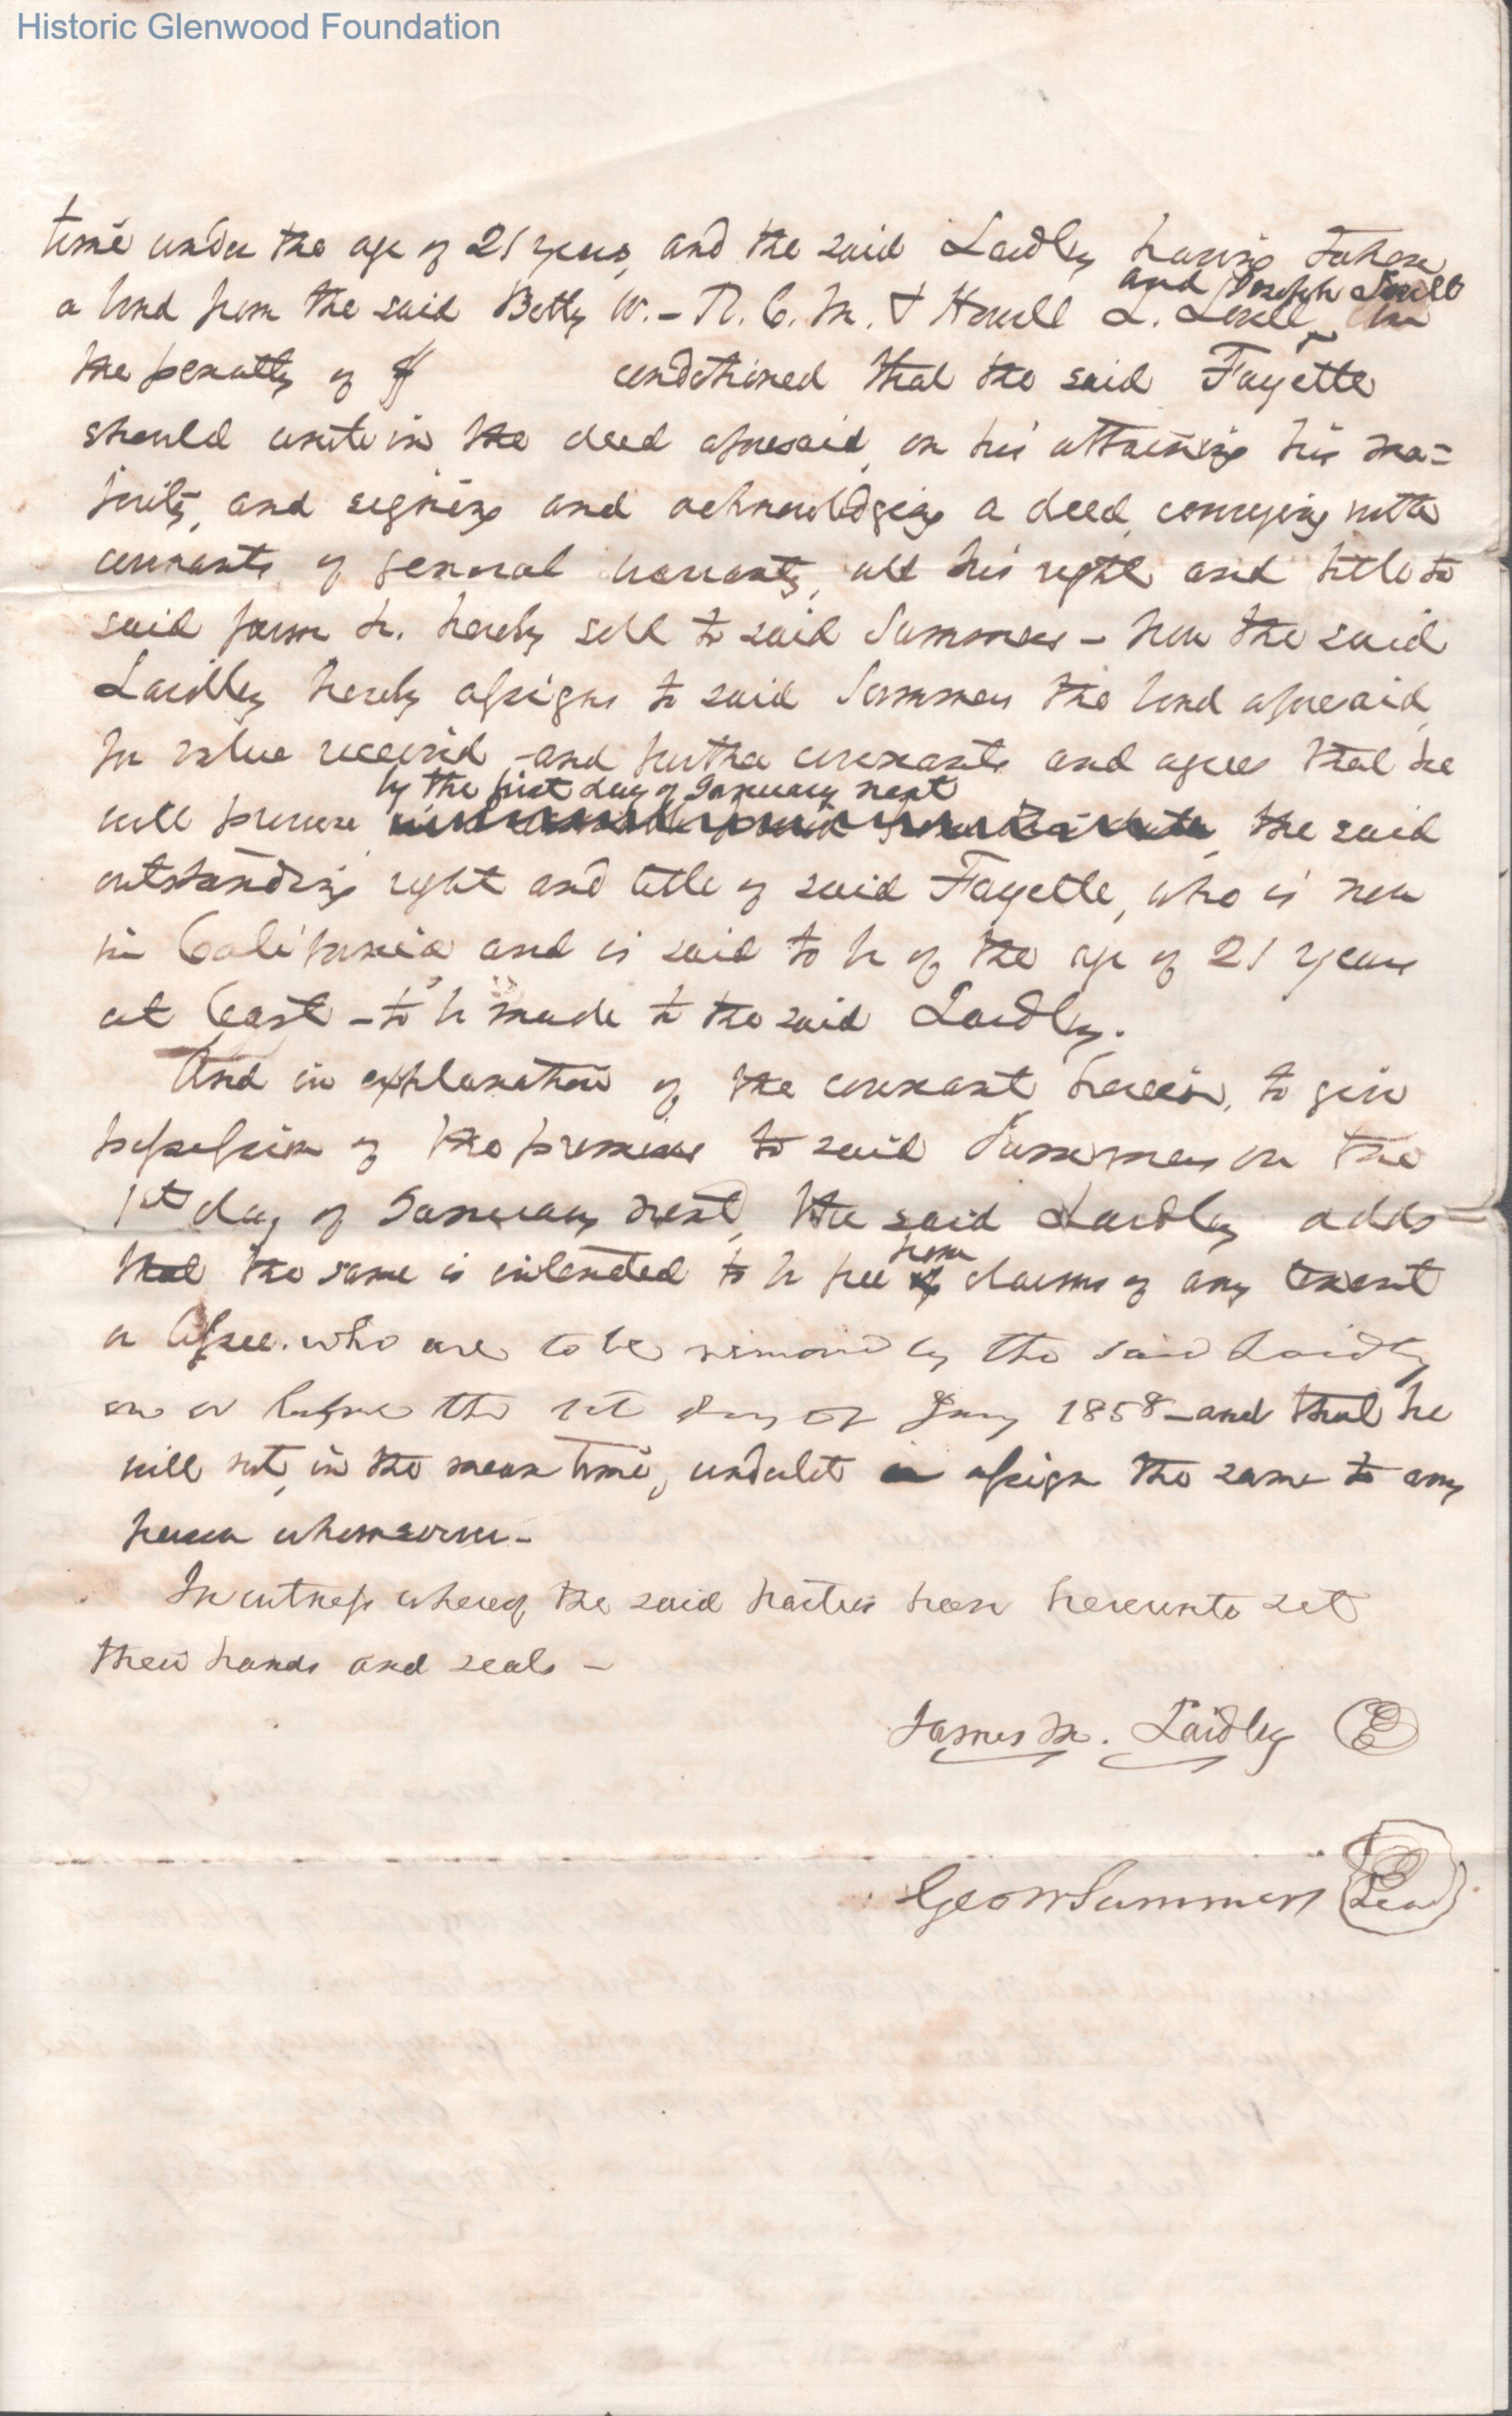 Historic Glenwood Foundation
time under the age of 21 years, and the said Laidley having taken
and Joseph Lovell
a bond from the said Betty W. - R. C. M. & Howell L. Lovell, in
the penalty of $ conditioned that the said Fayette
should unite in the deed aforesaid, on his attaining his ma=
jority, and signing and acknowledging a deed, conveying with
covenants of general warranty, all his right and title to
said farm hereby sold to said Summers - Now the said
Laidley hereby assigns to said Summers the bond aforesaid,
for value received - and further covenants and agrees that he
by the first day of January next
will procure the said
outstanding right and title of said Fayette, who is now
in California and is said to be of the age of 21 years
at least - to be made to the said Laidley.
And in explanation of the covenant herein, to give
possession of the premises to said Summers on the
1st day of January next, the said Laidley adds
from
that the same is intended to be free claims of any tenant
or lessee. who are to be removed by the said Laidley
on or before the 1st day of Jany 1858 - and that he
will not, in the mean time, underlet or assign the same to any
person whomsoever -
In witness whereof the said parties have hereunto set
their hands and seals -
James M. Laidley
Geo W Summers Seal